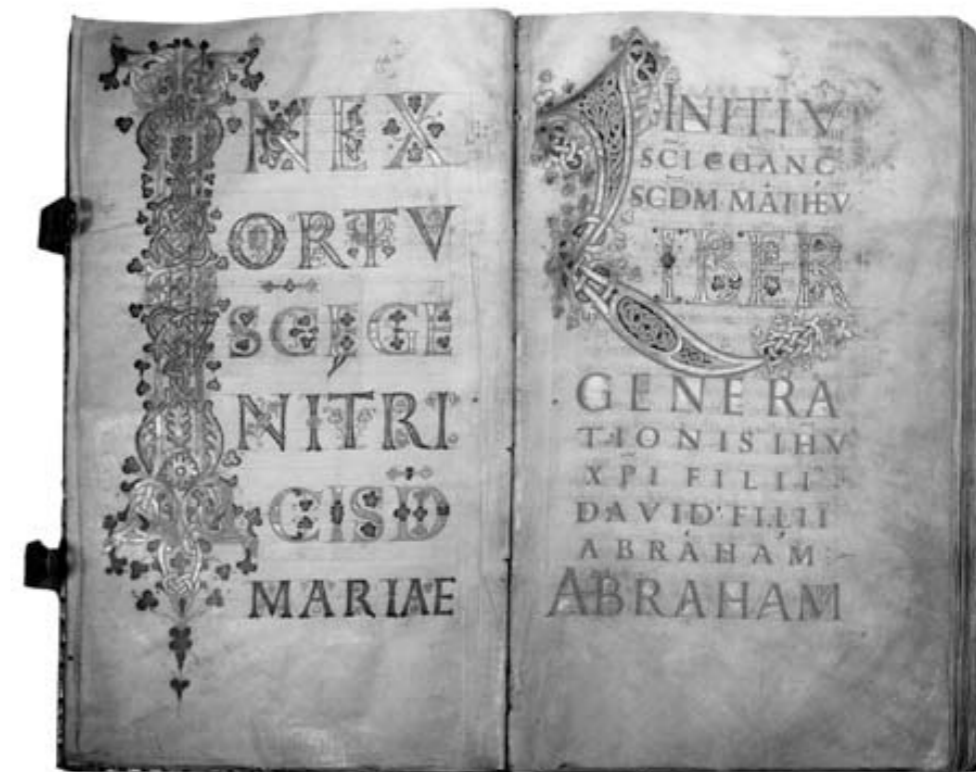 IN EX
ORTV
SCĘ GE
NITRI
CIS DI
MARIAE
INITIV
SCI EGANG
SCDM MATHEV
LIBER
GENERA
TIONIS IHV
XPI FILII
DAVID FILII
ABRAHAM
ABRAHAM